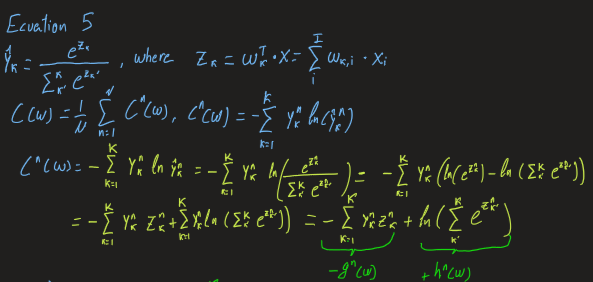 Equation 5
Ŷ_k = e^{z_k} / Σ_{k'}^{K} e^{z_{k'}} , where z_k = w_k^T · x = Σ_i^I w_{k,i} · x_i
C(w) = 1/N Σ_{n=1}^{N} C^n(w), C^n(w) = - Σ_{k=1}^{K} y_k^n ln(ŷ_k^n)
C^n(w) = - Σ_{k=1}^{K} y_k^n ln ŷ_k^n = - Σ_{k=1}^{K} y_k^n ln( e^{z_k^n} / Σ_{k'}^{K} e^{z_{k'}^n} ) = - Σ_{k=1}^{K} y_k^n (ln(e^{z_k^n}) - ln(Σ_{k'}^{K} e^{z_{k'}^n}))
= - Σ_{k=1}^{K} y_k^n z_k^n + Σ_{k=1}^{K} y_k^n ln(Σ_{k'}^{K} e^{z_{k'}^n})) = - Σ_{k=1}^{K} y_k^n z_k^n + ln(Σ_{k'}^{K} e^{z_{k'}^n})
-g^n(w) + h^n(w)